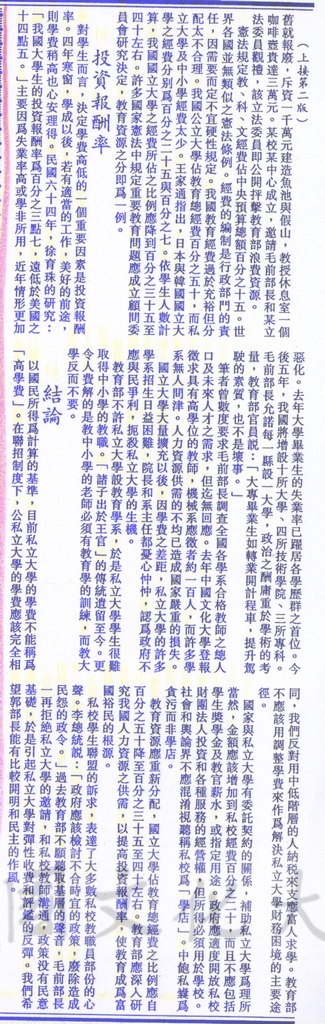 （上接第二版）
舊就報廢，斥資一千萬元建造魚池與假山，教授休息室一個
咖啡壺貴達三萬元。某校某中心成立，邀請毛前部長和某立
法委員觀禮，該立法委員即公開抨擊教育部浪費資源。
憲法規定教、科、文經費佔中央預算總額百分之十五。世
界各國並無類似之憲法條例。經費的編制是行政部門的責
任，因需要而定不宜硬性規定。我國教育經費過於充裕但分
配太不合理。我國公立大學佔教育總經費百分之五十，而私
立大學及中小學經費太少。王家通指出，日本與韓國國立大
學之經費分別爲百分之二十五與百分之七。依學生人數計
算，我國國立大學之經費所佔之比例應降到百分之三十五至
四十左右。許多國家憲法中規定重要教育問題應成立顧問委
員會研究決定，教育資源之分即爲一例。
投資報酬率
對學生而言，決定學費高低的一個重要因素是投資報酬
率。四年寒窗，學成以後，若有適當的工作，美好的前途，
則學費稍高也心安理得。民國六十四年，徐育珠的研究：
「我國大學生的投資報酬率爲百分之三點七，遠低於美國之
十四點五。」主要因爲失業率高或學非所用，近年情形更加
惡化。去年大學畢業生的失業率已躍居各學歷群之首位。今
後五年，我國將增設十所大學、四所技術學院、三所專科。
毛前部長允諾每一縣設一大學，政治之酬庸重於學術的考
量，教育部官員說：「大專畢業生如轉業開計程車，提升駕
駛的素質，也不是壞事。」
筆者曾數度要求毛前部長調查全國各學系合格教師之總人
口及未來人才之需求，但迄無回應。去年中國文化大學登報
徵求具有高學位的教師，機械系應徵者約一百人，而許多學
系無人問津。人力資源供需的不均已造成國家嚴重的損失。
國立大學大量擴充以後，因學費之差距，私立大學的許多
學系招生日益困難，院長和系主任都憂心忡忡，認爲政府不
應與民爭利，扼殺私立大學的生機。
教育部不許私立大學設教育學系，於是私立大學學生很難
取得中小學的教職。「諸子出於王官」的傳統遺留至今。更
令人費解的是教中小學的老師必須有教育學的訓練，而教大
學反而不要。
結論
以國民所得爲計算的基準，目前私立大學的學費不能稱爲
「高學費」。在聯招制度下，公私立大學的學費應該完全相
同，我們反對用中低階層的人納稅來支應富人求學。教育部
不應該用調整學費來作爲解決私立大學財務困境的主要途
徑。
國家與私立大學有委託契約的關係，補助私立大學爲理所
當然，金額應該增加到私校經費百分之二十，而且不應包括
學生獎學金及教官薪水，或指定用途。政府應適度開放私校
財團法人投資和各種服務的經營權，但所得必須用於學校。
社會和輿論界不應混淆視聽稱私校爲「學店」。中飽私囊爲
貪污而非學店。
教育資源應重新分配，國立大學佔教育總經費之比例應自
百分之五十降至百分之三十五至四十左右。教育部應深入研
究我國人力資源之供需，以提高投資報酬率，使教育成爲富
國裕民的根源。
私校學生聯盟的訴求，表達了大多數私校教職員部份的心
聲。李總統說：「政府應該檢討不合時宜的政策，廢除造成
民怨的政令。」過去教育部不願聽取基層的聲音，毛前部長
一再拒絕私立大學的邀請，和私校教師溝通，政策没有民意
基礎，於是引起私立大學對彈性收費和評鑑的反彈。我們希
望郭部長能有比較開明和民主的作風。